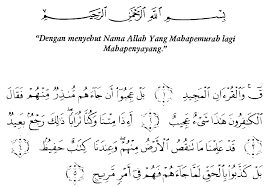 بِسْمِ اللَّهِ الرَّحْمَٰنِ الرَّحِيمِ
“Dengan menyebut Nama Allah Yang Mahapemurah lagi
Mahapenyayang.”
قٓ ۚ وَالْقُرْءَانِ الْمَجِيدِ ﴿١﴾ بَلْ عَجِبُوٓا۟ أَن جَآءَهُم مُّنذِرٌ مِّنْهُمْ فَقَالَ
الْكَٰفِرُونَ هَٰذَا شَىْءٌ عَجِيبٌ ﴿٢﴾ أَءِذَا مِتْنَا وَكُنَّا تُرَابًا ۖ ذَٰلِكَ رَجْعٌۢ بَعِيدٌ
﴿٣﴾ قَدْ عَلِمْنَا مَا تَنقُصُ الْأَرْضُ مِنْهُمْ ۖ وَعِندَنَا كِتَٰبٌ حَفِيظٌۢ ﴿٤﴾
بَلْ كَذَّبُوا۟ بِالْحَقِّ لَمَّا جَآءَهُمْ فَهُمْ فِىٓ أَمْرٍ مَّرِيجٍ ﴿٥﴾